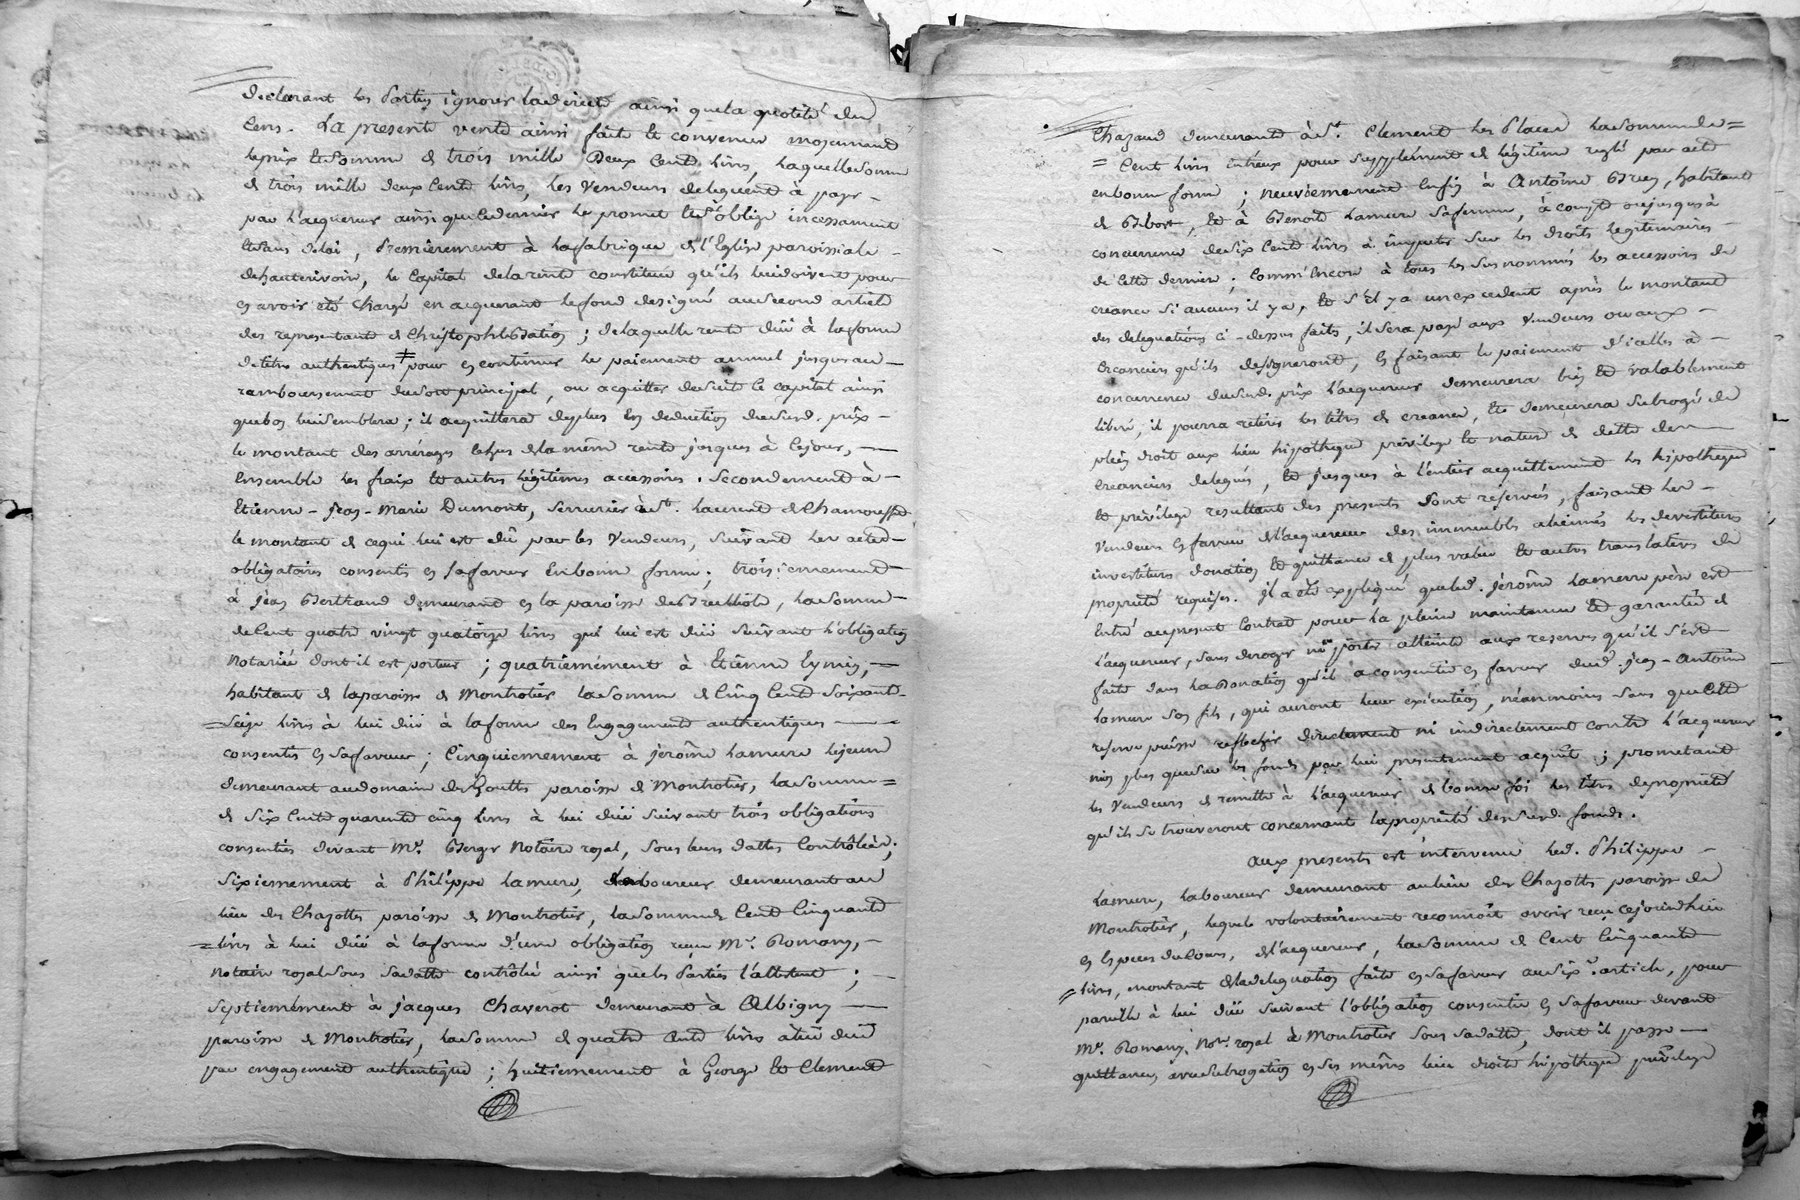 declarant les parties ignorer la directe ainsi que la quotité du
Cens. La presente vente ainsi faite et convenue moyennant
le prix et somme de trois mille deux Cent livres, laquelle somme
de trois mille deux Cents livres, les Vendeurs deleguent à payer
par l'acquereur ainsi que ce dernier le promet et s'oblige incessament
et sans delai, premierement à la fabrique de l'Eglise paroissiale
de hauterivoire, le Capital de la rente constituée qu'ils lui doivent pour
en avoir été chargé en acquerant le fond designé au second article
des representant de Christophle Bation; de laquelle rente düe à la forme
de titre authentiques pour en continuer le paiement annuel jusques au
remboursement du sort principal, ou acquitter de suite le capital ainsi
que bon lui semblera; il acquittera de plus en deduction du susd. prix
le montant des arrérages echus de la même rente jusques à ce jour,
Ensemble les fraix et autres légitimes accessoires. Secondement à
Etienne-Jean-Marie Dumont, serrurier à St. Laurent de Chamousset
le montant de ce qui lui est dû par les Vendeurs, suivant les actes
obligatoires consentis en sa faveur en bonne forme; troisiemement
à Jean Bertrand demeurant en la paroisse de Brulliole, la somme
de Cent quatre vingt quatorze livres qui lui est düe suivant l'obligation
Notariée dont il est porteur; quatriemément à Etienne Eymin,
habitant de la paroisse de Montrotier la somme de Cinq Cent soixante
seize livres à lui düe à la forme des Engagements authentiques
consentis en sa faveur; Cinquiemement à jerôme Lamure le jeune
demeurant au domaine des Gouttes paroisse de Montrotier, la somme
de six Cents quarente cinq livres à lui düe suivant trois obligations
consenties devant Me. Berger Notaire royal, sous leurs dattes Contrôlées;
sixiemement à Philippe Lamure, laboureur demeurant au
lieu des Chazottes paroisse de Montrotier, la somme de Cent Cinquante
livres à lui düe à la forme d'une obligation reçue Me. Romany,
Notaire royal sous sa datte contrôlée ainsi que les Parties l'attestent;
septiemément à Jacques Chaverot demeurant à Albigny
paroisse de Montrotier, la somme de quatre Cents livres à lui düe
par engagement authentique; huitiemement à George et Clement
Chazaud demeurant à St. Clement les Places la somme de
Cent livres entr'eux pour supplément de légitime reglé par acte
en bonne forme; neuviemement enfin à Antoine Brun, habitant
de Bibost, et à Benoite Lamure sa femme, à compte ou jusques à
concurrence de six Cents livres à imputer sur les droits legitimaires
de cette derniere; comm'encore à tous les susnommés les accessoires de
creance si aucuns il y a, et s'il y a un excedent après le montant
des delegations ci-dessus faites, il sera payé aux Vendeurs ou aux
creanciers qu'ils designeront, en faisant le paiement d'icelles à
concurrence du susd. prix l'acquereur demeurera bien et valablement
liberé, il pourra retirer les titres de creance, et demeurera subrogé de
plein droit aux lieu hipotheque privilege et nature de dette des
Creanciers delegués, et jusques à l'entier acquittement les hipotheque
et privilege resultant des presentes sont reservés, faisant les
Vendeurs en faveur de l'acquereur des immeubles alienés les devestitures
investitures donation et quittance de plus value et autres translatives de
proprieté requises. Il a été expliqué que led. jérôme Lamure père est
entré au present Contrat pour la pleine maintenue et garantie de
l'acquereur, sans deroger ni porter atteinte aux reserves qu'il s'est
faite dans la Donation qu'il a consentie en faveur dud. jean-Antoine
Lamure son fils, qui auront leur exécution, néanmoins sans que cette
reserve puisse reflechir directement ni indirectement contre l'acquereur
ni plus que sur les fonds par lui presentement acquit; prometant
les Vendeurs de remettre à l'acquereur de bonne foi les titres de proprieté
qu'ils se trouveront concernant la proprieté des susd. fonds.
aux presentes est intervenu led. Philippe
Lamure, laboureur demeurant au lieu des Chazottes paroisse de
Montrotier, lequel volontairement reconnoît avoir reçu ce jourd'hui
en Especes du Cours, de l'acquereur, la somme de Cent Cinquante
livres, montant de la delegation faite en sa faveur au six.e article, pour
pareille à lui düe suivant l'obligation consentie en sa faveur devant
Me. Romany, Nore. royal à Montrotier sous sa datte, dont il passe
quittance, avec subrogation en ses mêmes lieu droits hipotheque privilege